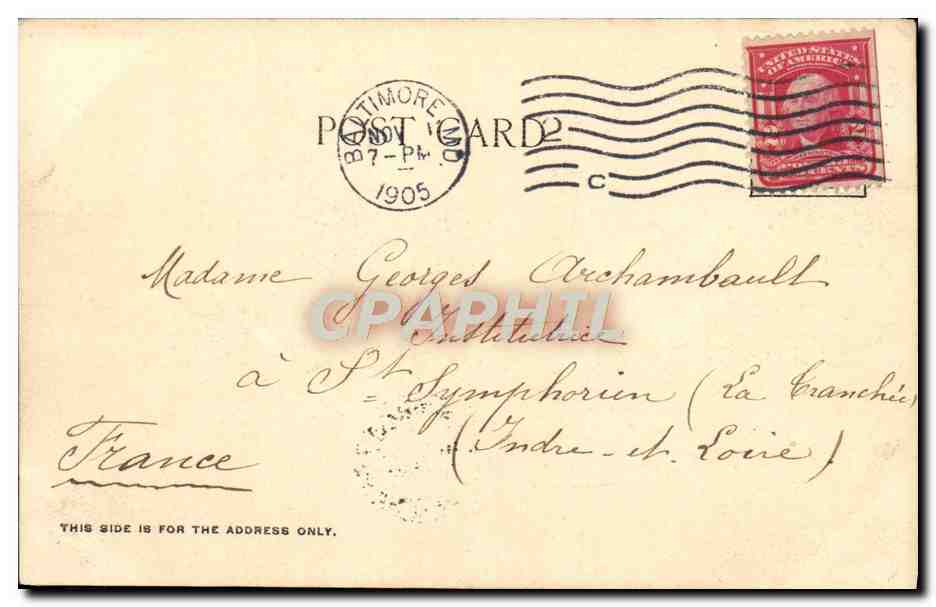 UNITED STATES
OF AMERICA
BALTIMORE, MD.
NOV 1
7-PM
1905
POST CARD
2
C
2 2
TWO CENTS
Madame Georges Archambault
CPAPHIL
Institutrice
à St Symphorien (La Tranchée)
(Indre-et-Loire)
France
THIS SIDE IS FOR THE ADDRESS ONLY.